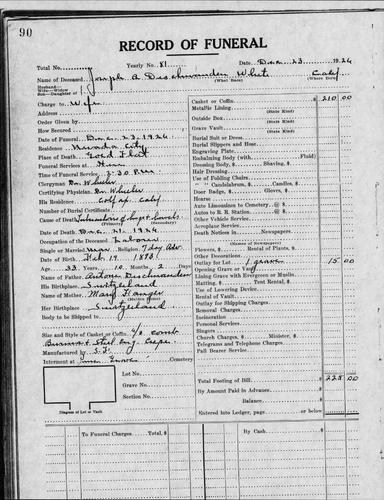 90
RECORD OF FUNERAL
Total No. Yearly No. 81 Dec 23 1926
Name of Deceased Joseph A. Deschwanden White Calif
(What Race) (Where Born)
Husband
Wife—Widow of
Son—Daughter
Charge to Wife
Address
Order Given by
How Secured
Date of Funeral Dec. 23, 1926
Residence Nevada City
Place of Death Gold Flat
Funeral Services at Home
Time of Funeral Service 2:30 P.M.
Clergyman
Certifying Physician Dr.
His Residence Colfax Calif.
Number of Burial Certificate
Cause of Death Tuberculosis of
(Primary) (Secondary)
Date of Death Dec. 21, 1926
Occupation of the Deceased Laborer
Single or Married Religion 7 day Adv.
Date of Birth Feb. 19 1893
Age 33 Years 10 Months 2 Days
Name of Father Antone Deschwanden
His Birthplace Switzerland
Name of Mother Mary
(Maiden Name)
Her Birthplace Switzerland
Body to be Shipped to
Size and Style of Casket or Coffin 6/3 Comb
Manufactured by S.F.
Interment at Pine Grove Cemetery
Lot No.
Grave No.
Section No.
Diagram of Lot or Vault
Casket or Coffin $ 210 00
Metallic Lining
(State Kind)
Outside Box
(State Kind)
Grave Vault
(State Kind)
Burial Suit or Dress
Burial Slippers and Hose
Engraving Plate
Embalming Body (with Fluid)
Dressing Body, $ Shaving, $
Hair Dressing
Use of Folding Chairs
" " Candelabrum, $ Candles, $
Door Badge, $ Gloves, $
Hearse
Auto Limousines to Cemetery @ $
Autos to R. R. Station @ $
Other Vehicle Service
Aeroplane Service
Death Notices in Newspapers
(Names of Newspapers)
Flowers, $ Rental of Plants, $
Other Decorations
Outlay for Lot 1 grave 15 00
Opening Grave or Vault
Lining Grave with Evergreen or Muslin
Matting, $ Tent Rental, $
Use of Lowering Device
Rental of Vault
Outlay for Shipping Charges
Removal Charges
Incineration
Personal Services
Singers
Church Charges, $ Minister, $
Telegrams and Telephone Charges
Pall Bearer Service
Total Footing of Bill $ 225 00
By Amount Paid in Advance
Balance $
Entered into Ledger, page or below
To Funeral Charges Total, $
By Cash $